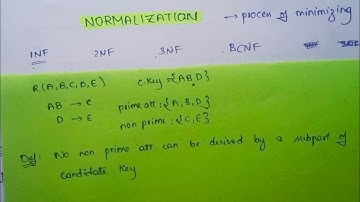 NORMALIZATION → process of minimizing
1NF 2NF 3NF BCNF
R(A,B,C,D,E) C.Key = {ABD}
AB → C prime att : {A,B,D}
D → E non prime : {C,E}
Def: No non prime att can be derived by a subpart of
candidate key